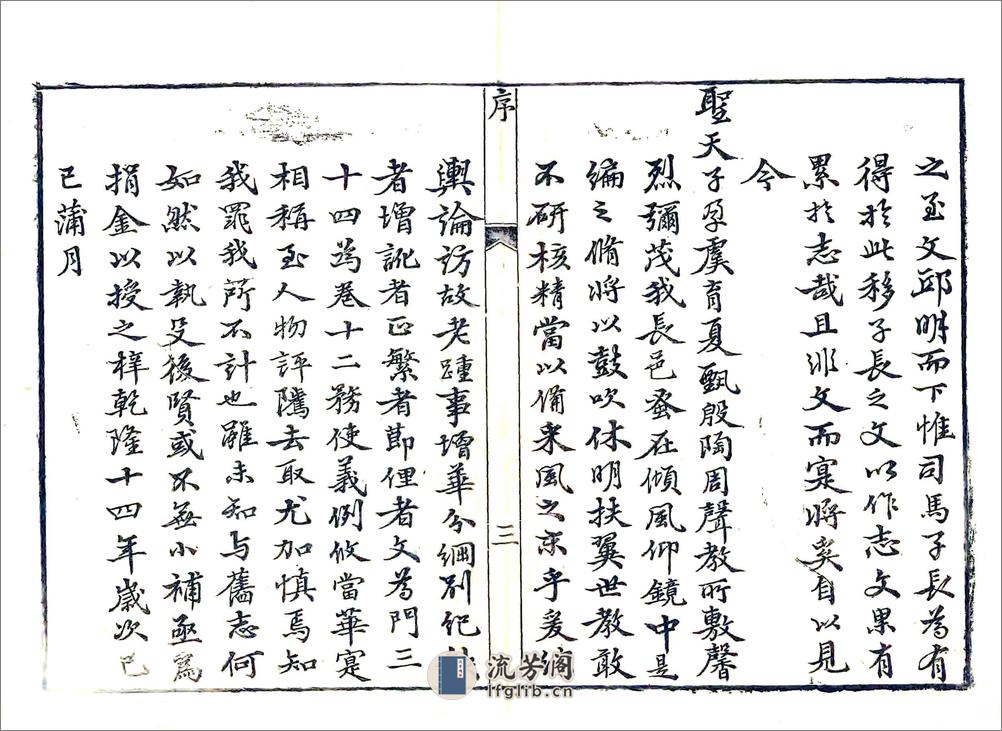 之至文邱明而下惟司馬子長為有
得於此移子長之文以作志文果有
累於志哉且非文而寔將奚自以見
今
聖天子孕虞育夏甄殷陶周聲教所敷馨
烈彌茂我長邑蚤在傾風仰鏡中是
編之脩將以鼓吹休明扶翼世教敢
不研核精當以備采風之宗乎爰
序
三
輿論訪故老踵事增華分綱別紀
者增訛者正繁者節俚者文為門三
十四為卷十二務使義例攸當華寔
相稱至人物評隲去取尤加慎焉知
我罪我所不計也雖未知与舊志何
如然以執殳後賢或不無小補亟為
捐金以授之梓乾隆十四年歲次己
巳蒲月
流芳阁
lfglib.cn